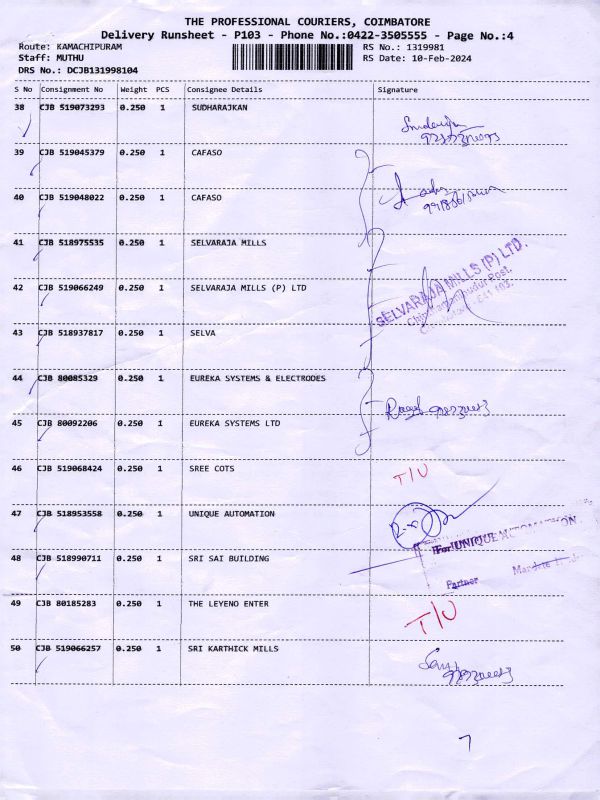 THE PROFESSIONAL COURIERS, COIMBATORE
Delivery Runsheet - P103 - Phone No.:0422-3505555 - Page No.:4
Route: KAMACHIPURAM RS No.: 1319981
Staff: MUTHU RS Date: 10-Feb-2024
DRS No.: DCJB131998104
S No Consignment No Weight PCS Consignee Details Signature
38 CJB 519073293 0.250 1 SUDHARAJKAN
39 CJB 519045379 0.250 1 CAFASO
40 CJB 519048022 0.250 1 CAFASO
41 CJB 518975535 0.250 1 SELVARAJA MILLS
SELVARAJA MILLS (P) LTD.
42 CJB 519066249 0.250 1 SELVARAJA MILLS (P) LTD
43 CJB 518937817 0.250 1 SELVA
44 CJB 80085329 0.250 1 EUREKA SYSTEMS & ELECTRODES
45 CJB 80092206 0.250 1 EUREKA SYSTEMS LTD
46 CJB 519068424 0.250 1 SREE COTS T/U
47 CJB 518953558 0.250 1 UNIQUE AUTOMATION
For UNIQUE AUTOMATION
48 CJB 518990711 0.250 1 SRI SAI BUILDING
Partner
49 CJB 80185283 0.250 1 THE LEYENO ENTER T/U
50 CJB 519066257 0.250 1 SRI KARTHICK MILLS
7